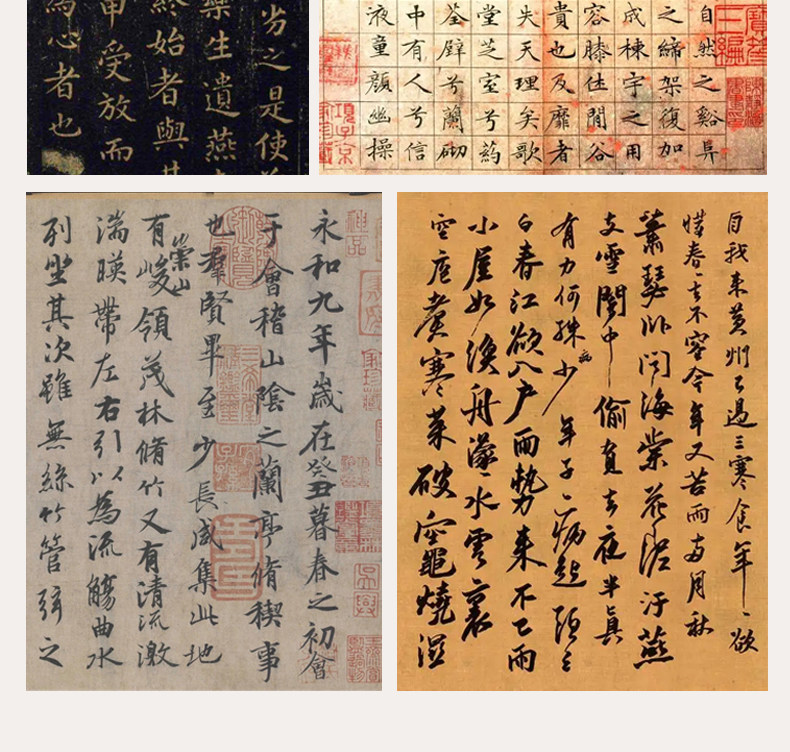 劣之是使
樂生遺燕
終始者與其
申受放而
為心者也
自然之谿
之締架復加
成棟宇之用
容膝仕閒谷
貴也及靡者
失天理矣歌
堂芝室兮葯
荃壁兮蘭砌
中有人兮信
液童顏幽操
永和九年歲在癸丑暮春之初會
于會稽山陰之蘭亭脩稧事
也羣賢畢至少長咸集此地
有崇山峻領茂林脩竹又有清流激
湍暎帶左右引以為流觴曲水
列坐其次雖無絲竹管弦之
自我來黃州已過三寒食年〻欲
惜春〻去不容今年又苦雨兩月秋
蕭瑟臥聞海棠花泥汙燕
支雪闇中偷負去夜半真
有力何殊病少年子〻病起頭已
白春江欲入戶雨勢來不已雨
小屋如漁舟濛〻水雲裏
空庖煮寒菜破竈燒溼